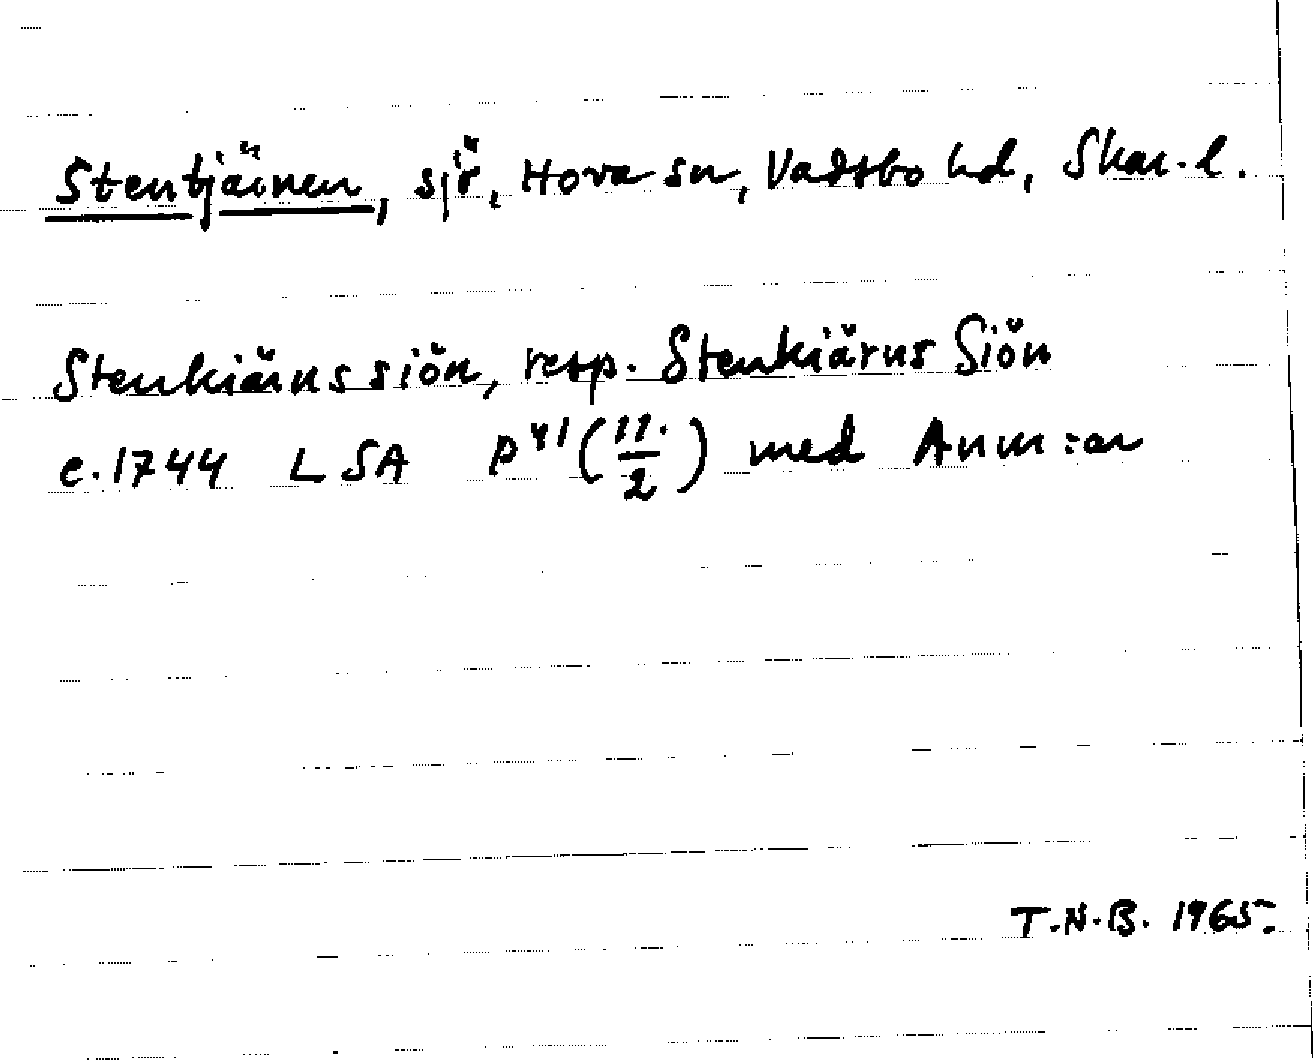 Stentjärnen, sjö, Hova sn, Vadsbo hd, Skar. l.
Stenkiärnssiön, resp. Stenkiärns Siön
c. 1744 LSA P 41 (11./2) med Anm:ar
T.N.B. 1965.